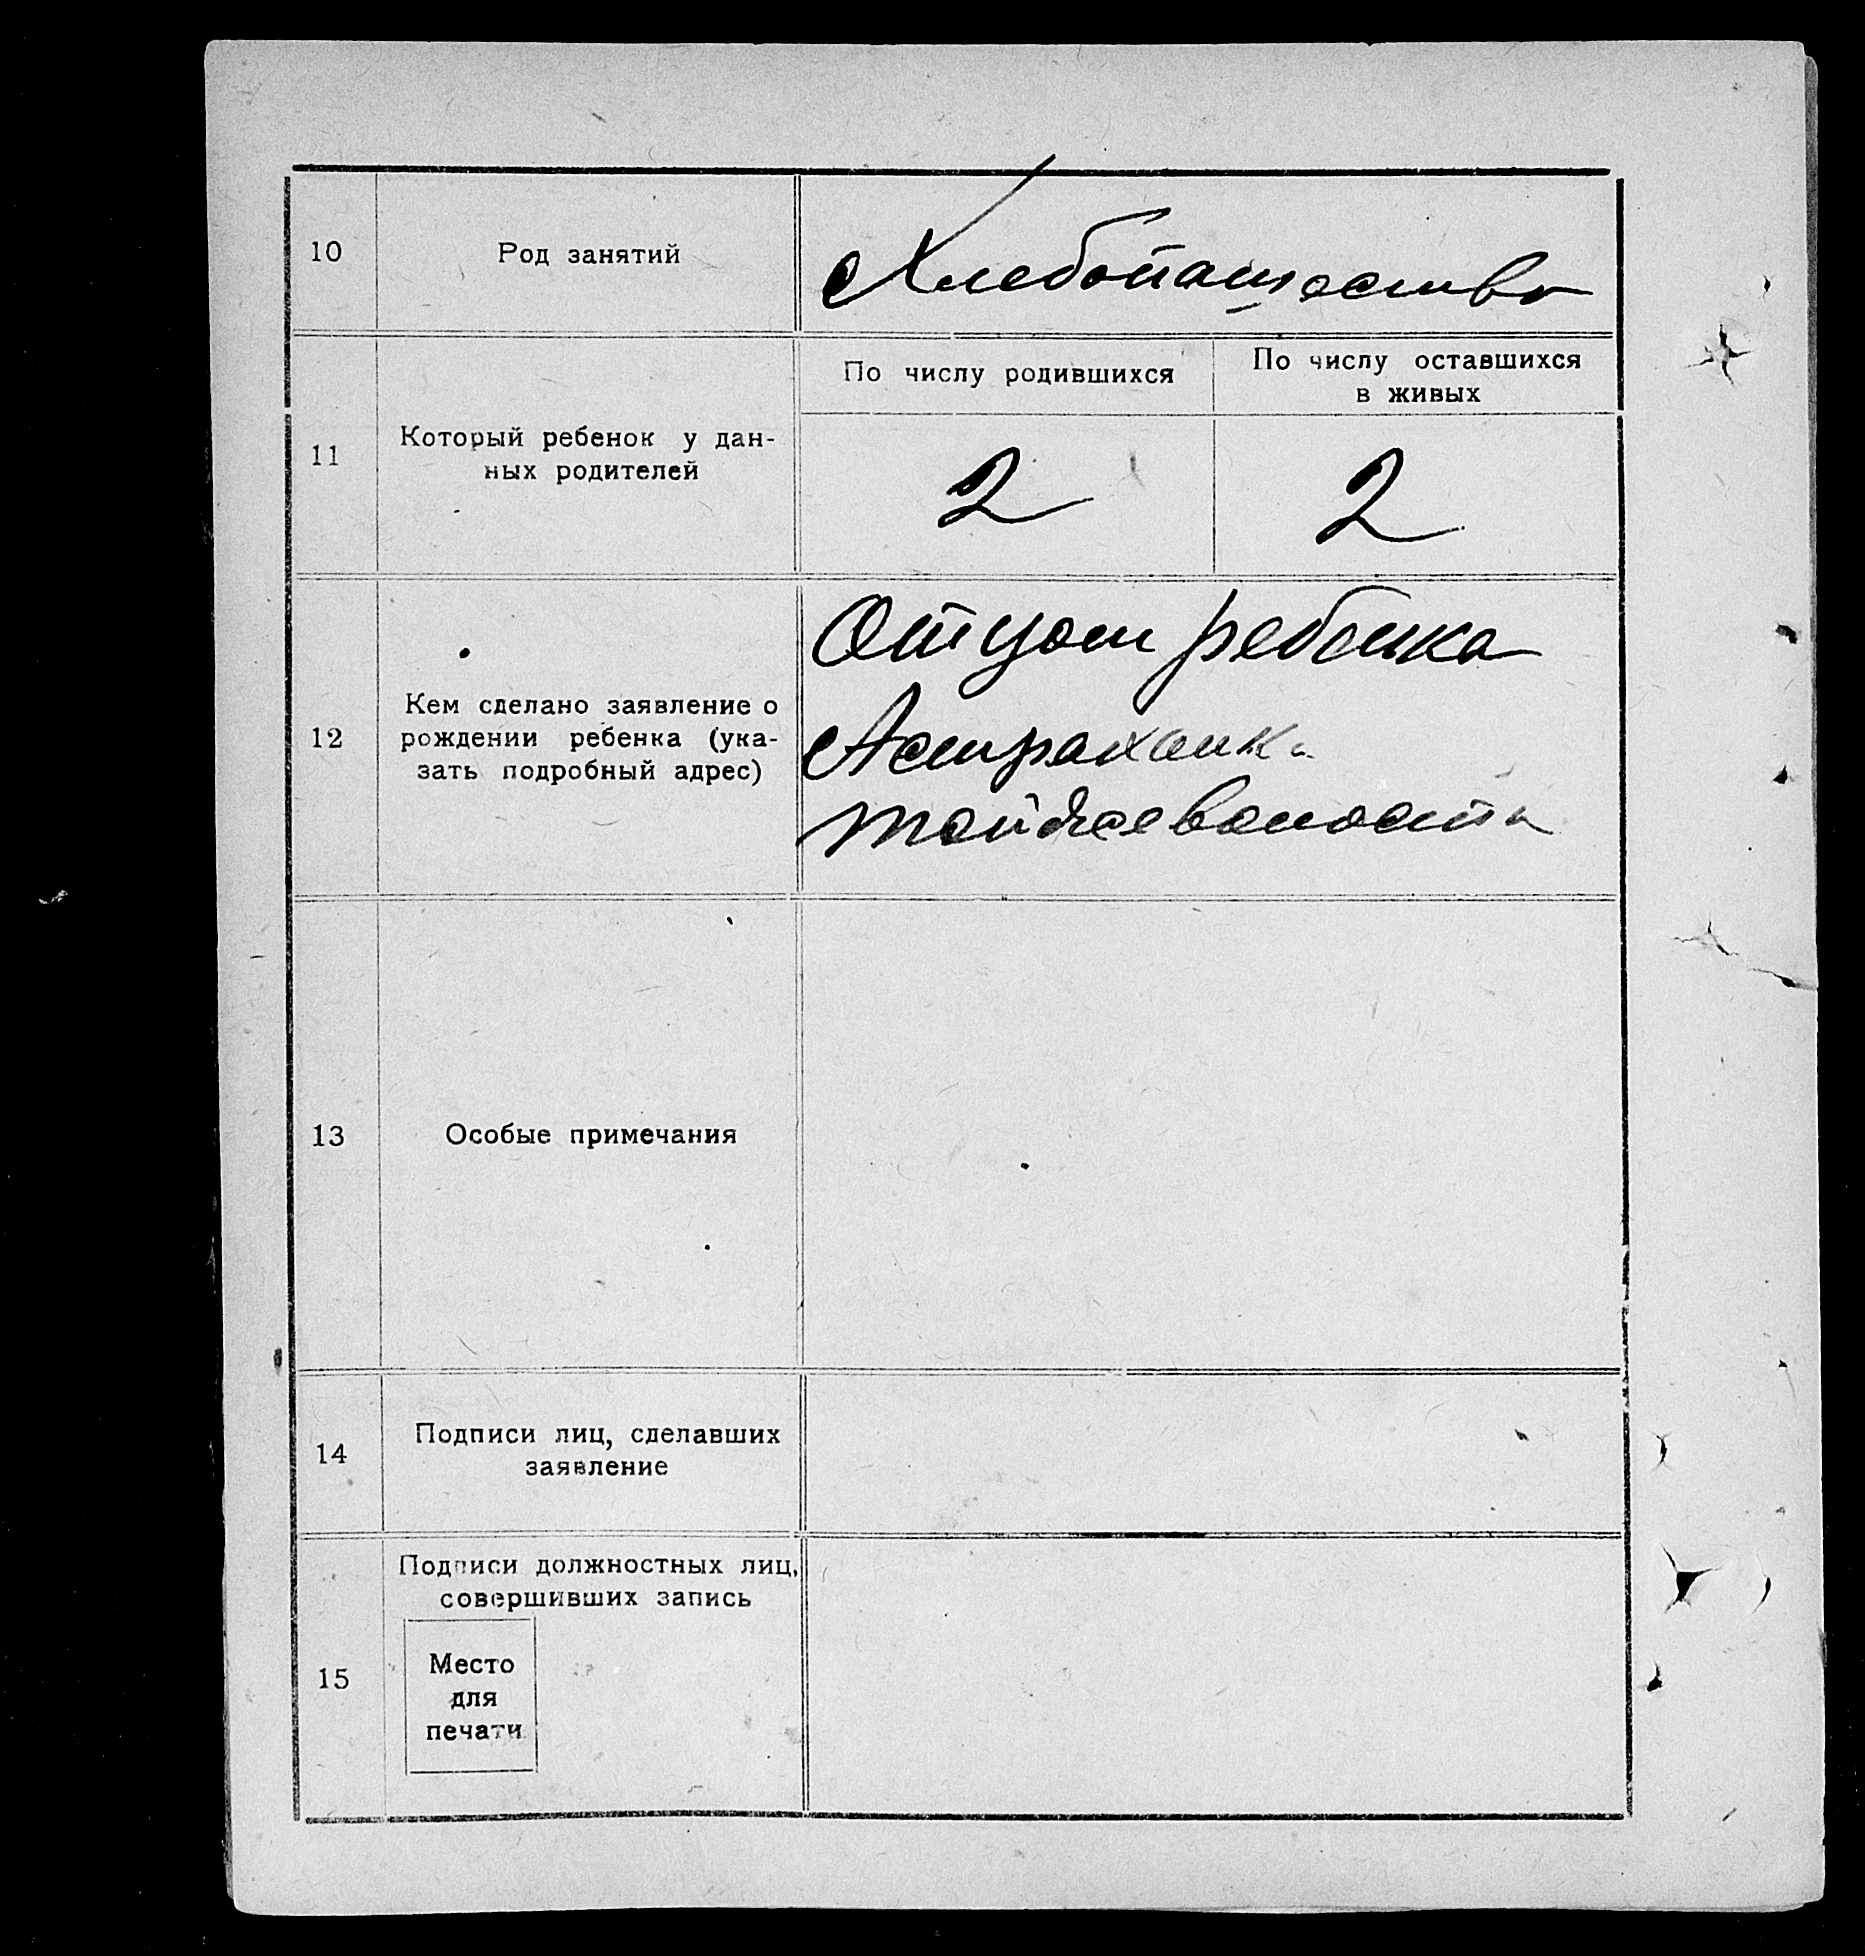 10
Род занятий
Хлебопашество
11
Который ребенок у дан-
ных родителей
По числу родившихся
По числу оставшихся
в живых
2
2
12
Кем сделано заявление о
рождении ребенка (ука-
зать подробный адрес)
Отцом ребенка
Астраханка
той же волости
13
Особые примечания
14
Подписи лиц, сделавших
заявление
15
Подписи должностных лиц,
совершивших запись
Место
для
печати